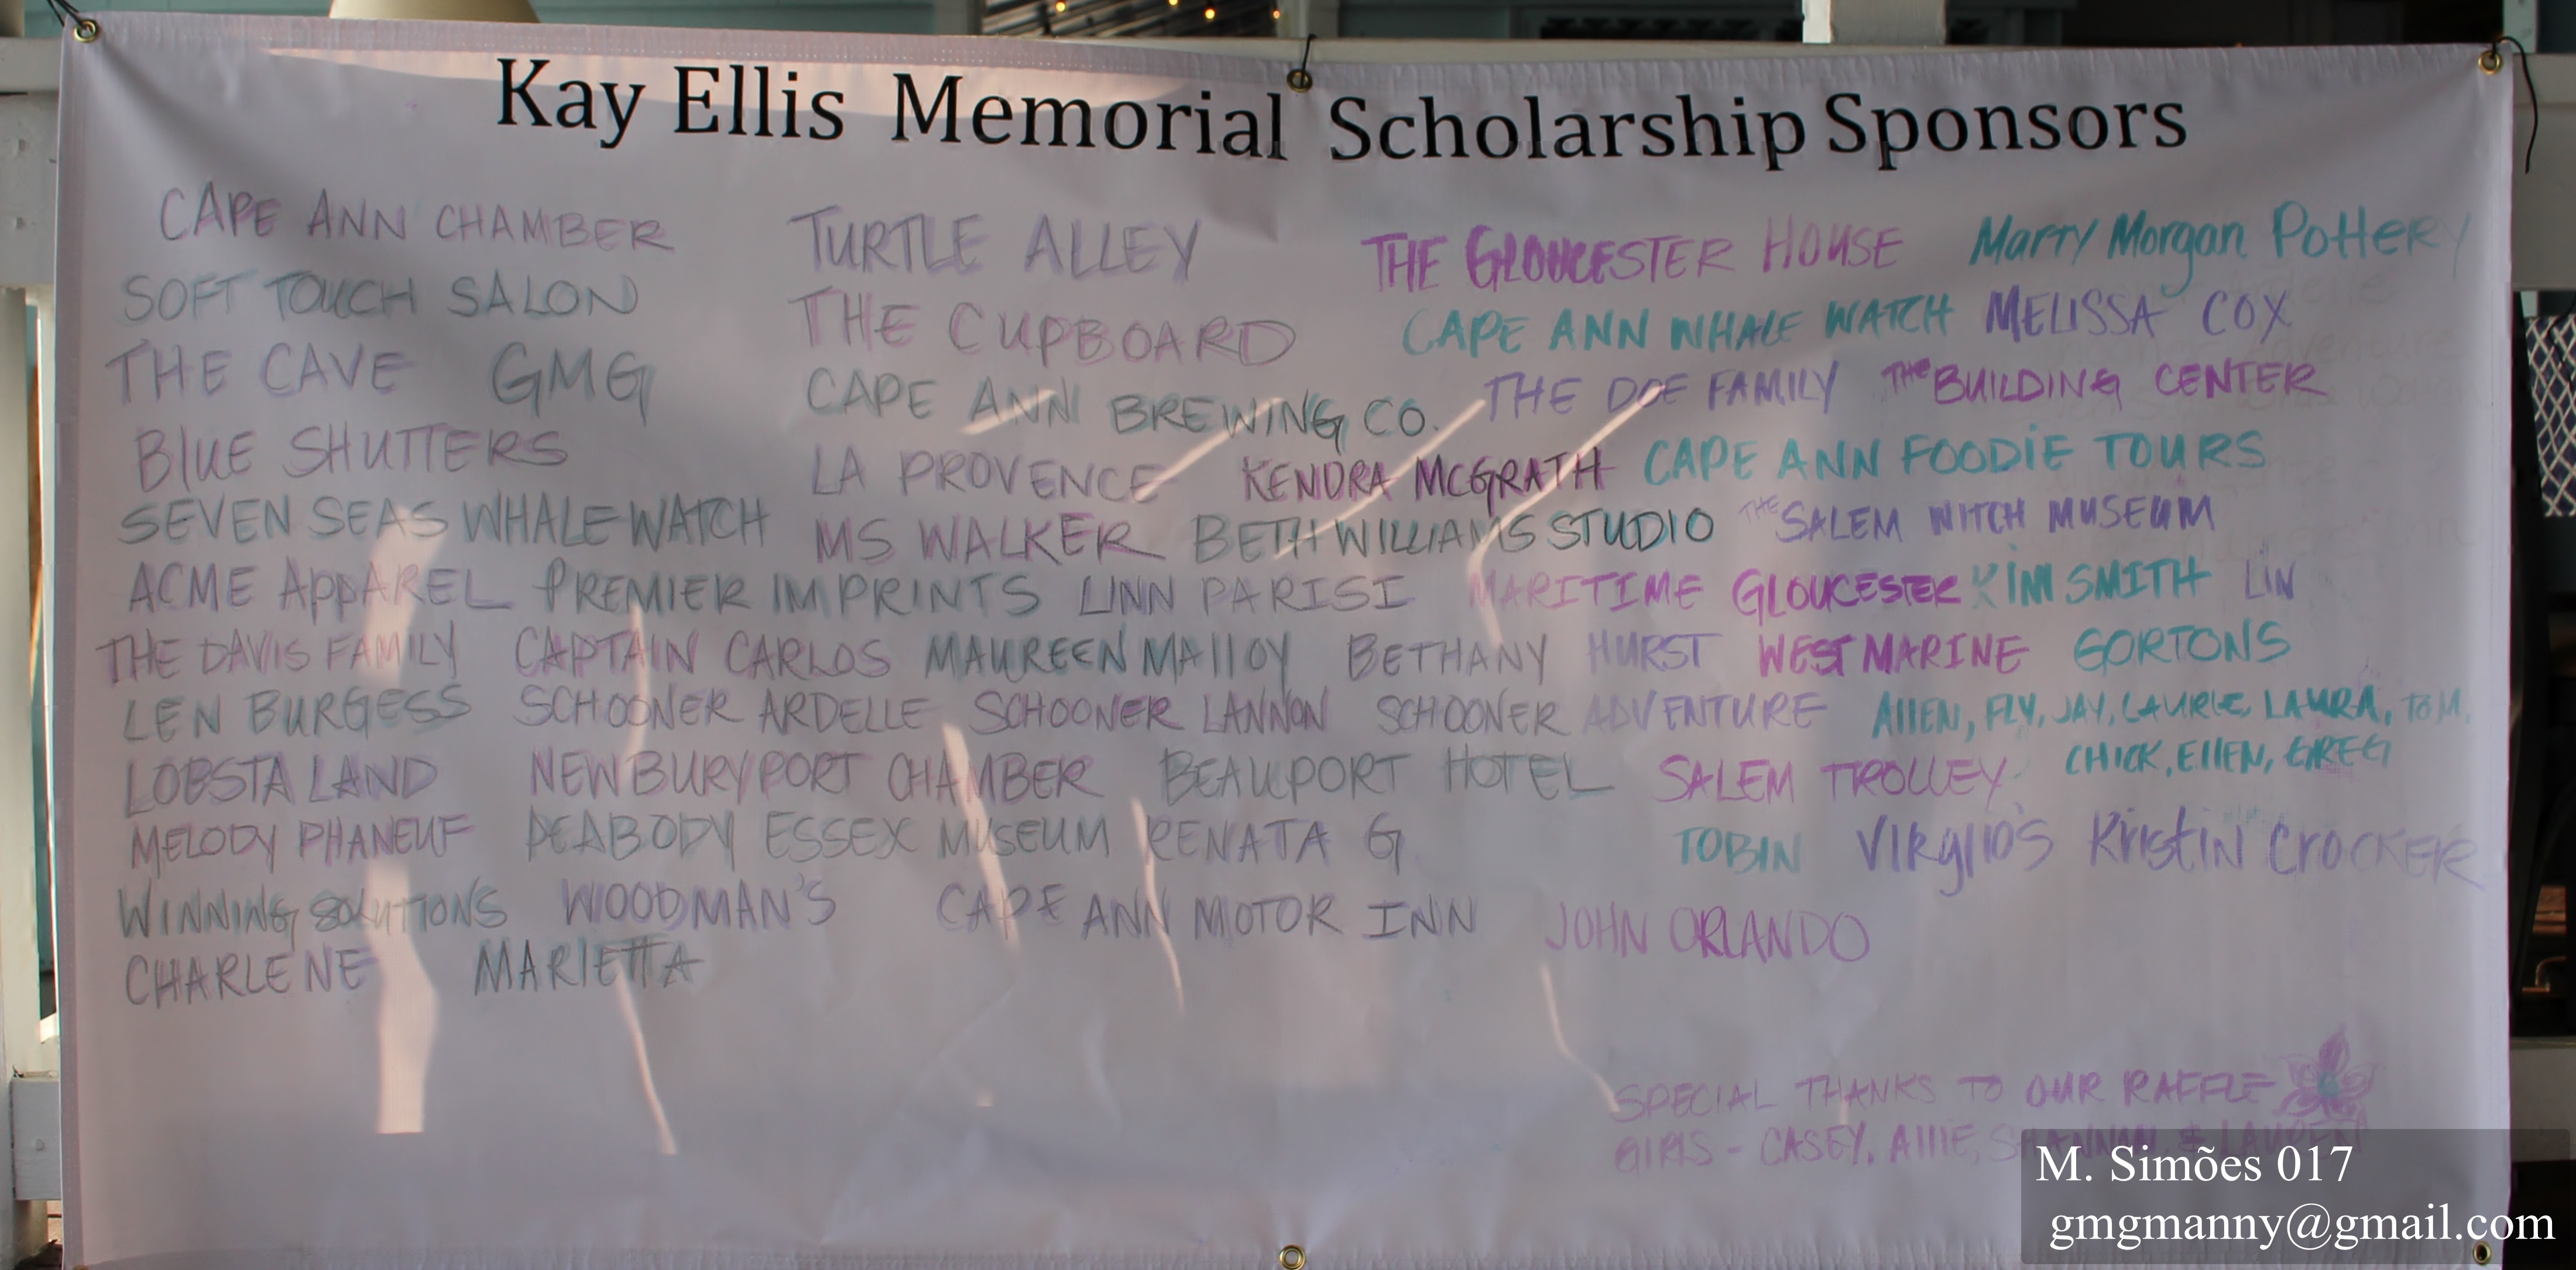 Kay Ellis Memorial Scholarship Sponsors
CAPE ANN CHAMBER TURTLE ALLEY THE GLOUCESTER HOUSE Marty Morgan Pottery
SOFT TOUCH SALON THE CUPBOARD CAPE ANN WHALE WATCH MELISSA COX
THE CAVE GMG CAPE ANN BREWING CO. THE DOE FAMILY THE BUILDING CENTER
BLUE SHUTTERS LA PROVENCE KENDRA MCGRATH CAPE ANN FOODIE TOURS
SEVEN SEAS WHALE WATCH MS WALKER BETH WILLIAMS STUDIO THE SALEM WITCH MUSEUM
ACME APPAREL PREMIER IMPRINTS LINN PARISI MARITIME GLOUCESTER KIM SMITH LIN
THE DAVIS FAMILY CAPTAIN CARLOS MAUREEN MALLOY BETHANY HURST WEST MARINE GORTONS
LEN BURGESS SCHOONER ARDELLE SCHOONER LANNON SCHOONER ADVENTURE ALLEN, FLY, JAY, LAURIE, LAURA, TOM,
LOBSTA LAND NEWBURYPORT CHAMBER BEAUPORT HOTEL SALEM TROLLEY CHICK, ELLEN, GREG
MELODY PHANEUF PEABODY ESSEX MUSEUM RENATA G TOBIN VIRGILIO'S Kristin CROCKER
WINNING SOLUTIONS WOODMAN'S CAPE ANN MOTOR INN JOHN ORLANDO
CHARLENE MARIETTA
SPECIAL THANKS TO OUR RAFFLE
GIRLS - CASEY, ALLIE, SHANNON & LAUREN
M. Simões 017
gmgmanny@gmail.com